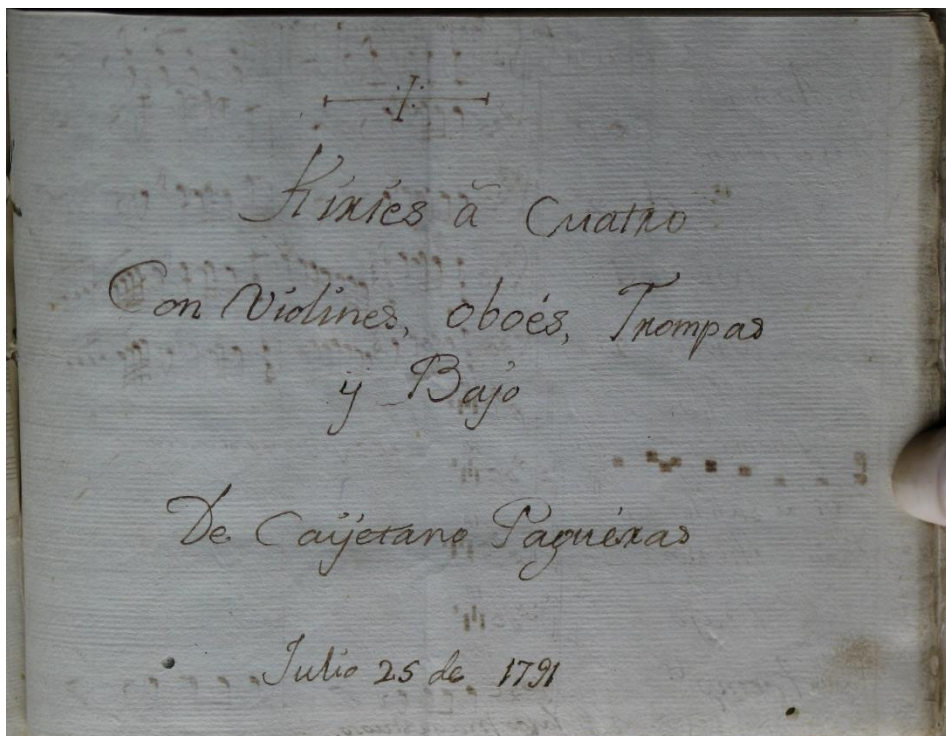 Kiries â Cuatro
Con Violines, oboés, Trompas
ÿ Bajo
De Caÿetano Pagueras
Julio 25 de 1791